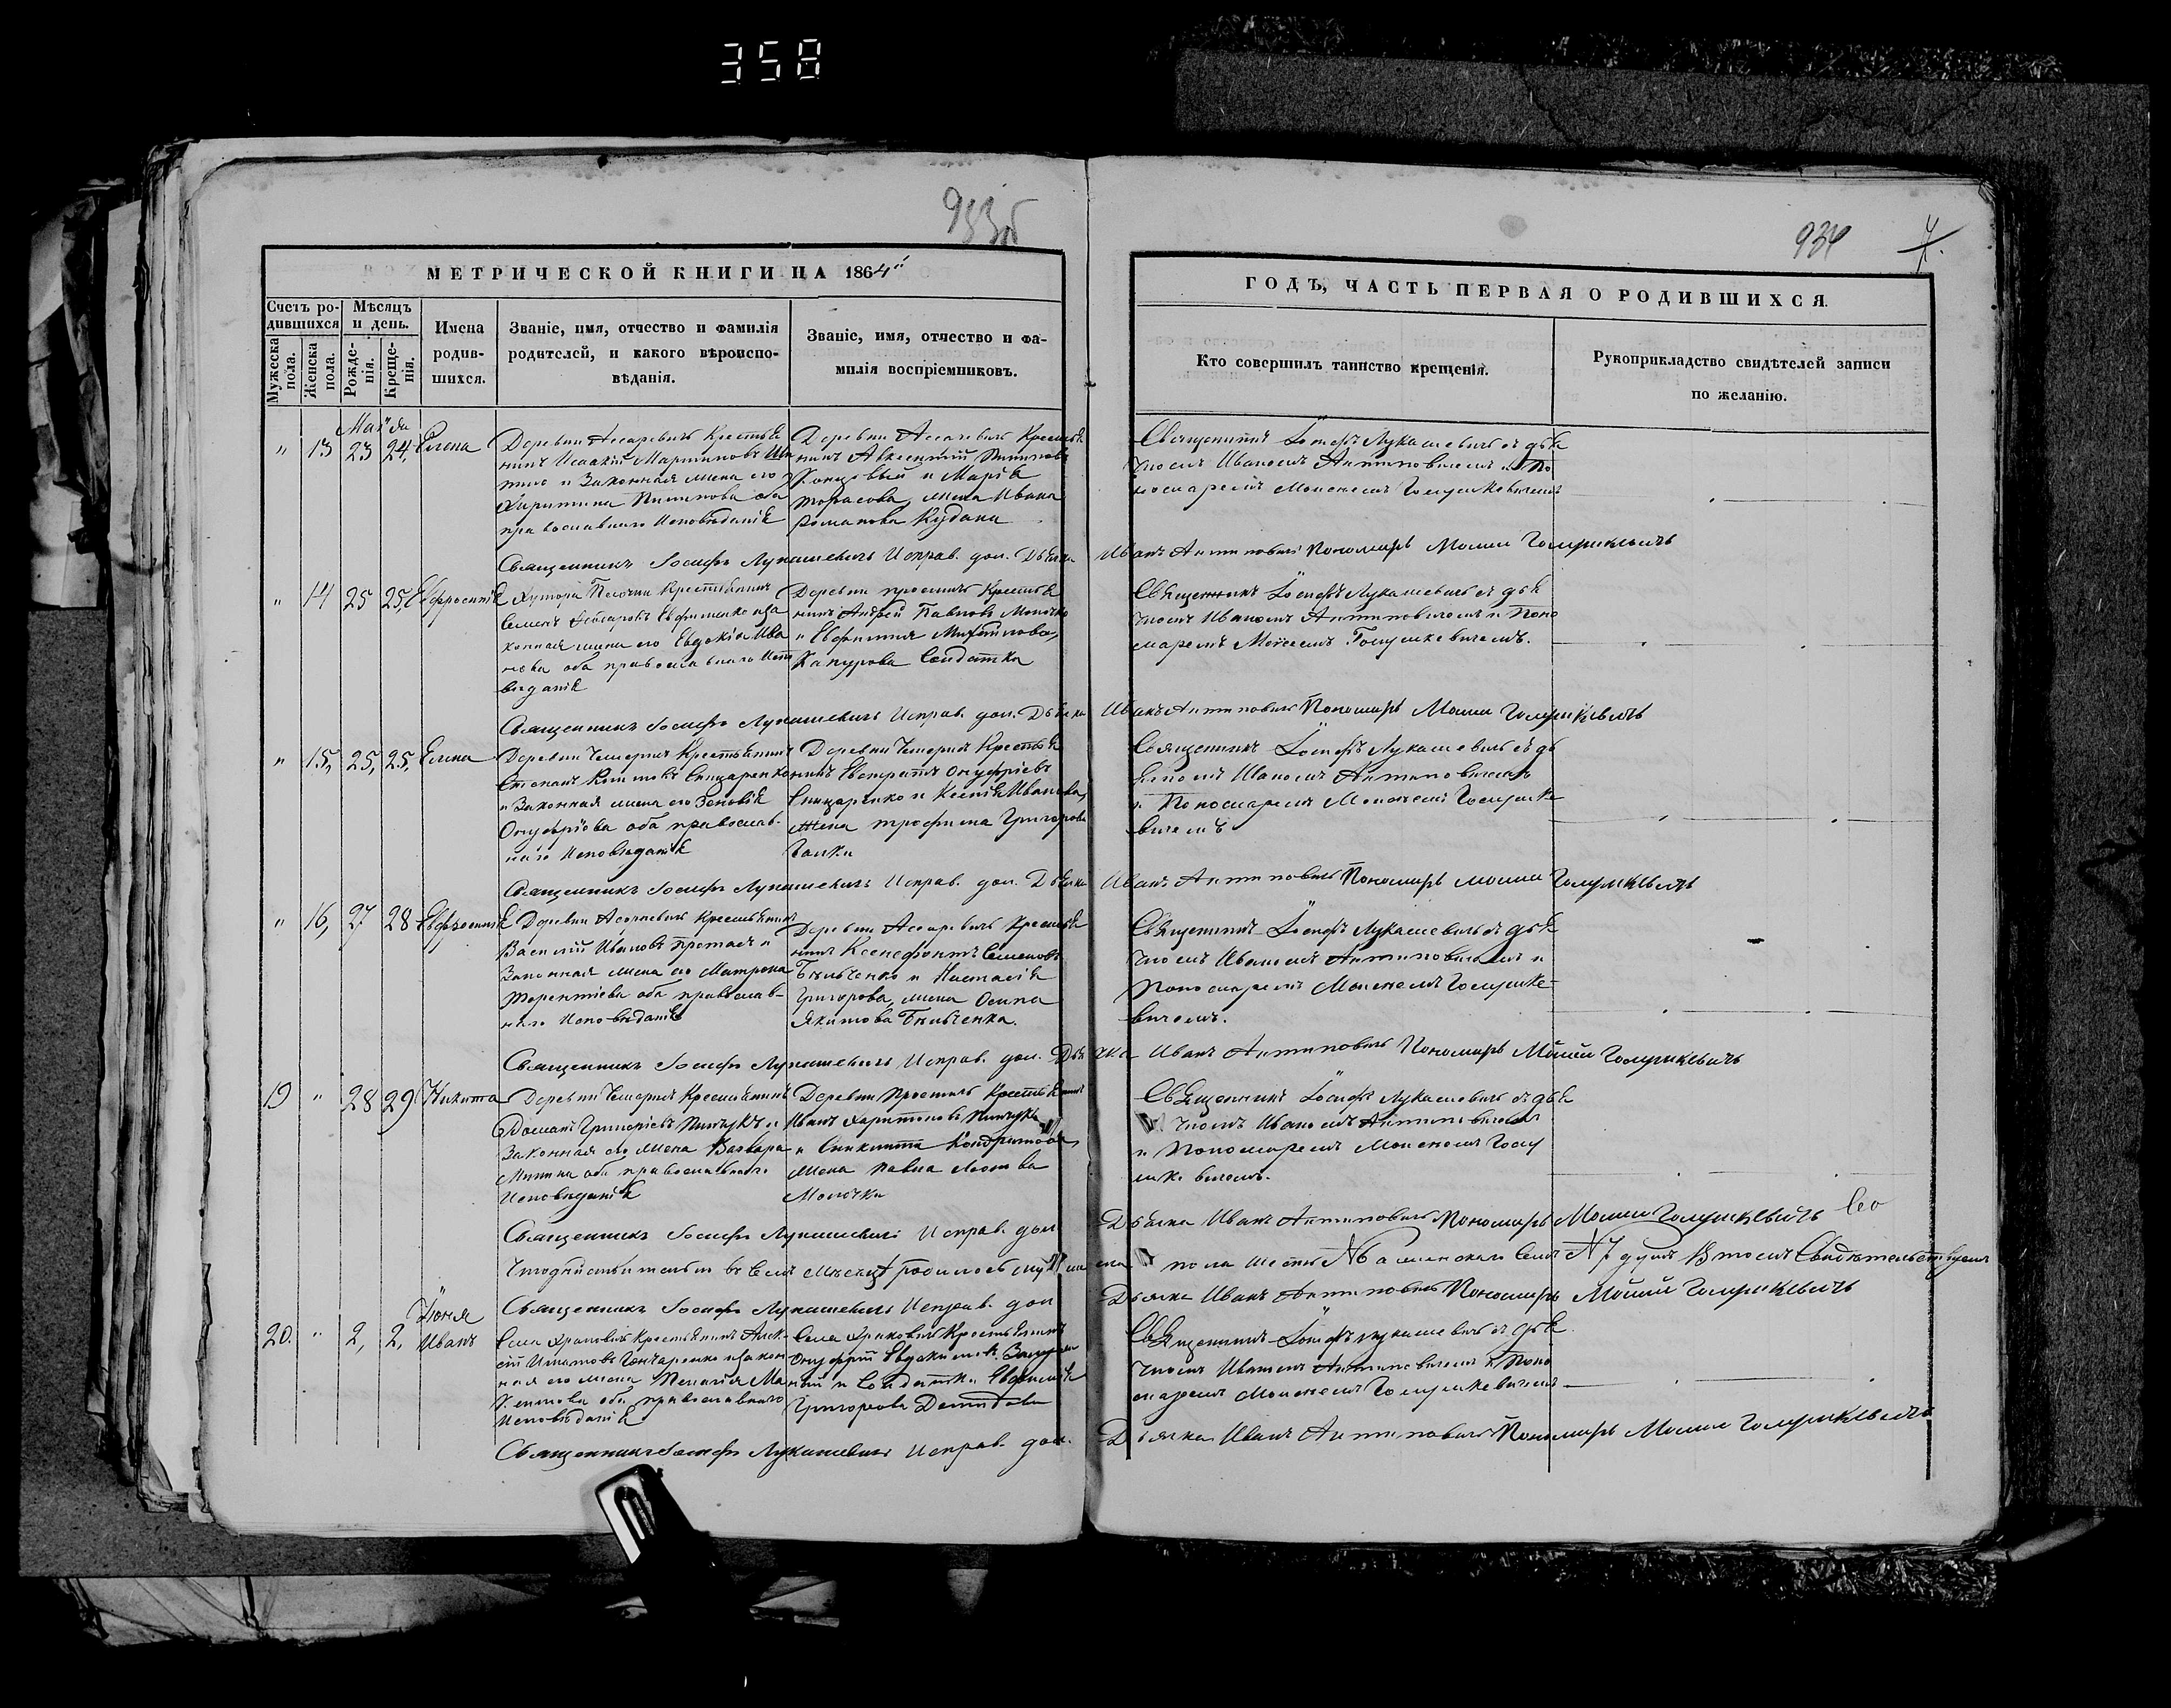 358
933об
934
4.
МЕТРИЧЕСКОЙ КНИГИ НА 1864й
ГОДЪ, ЧАСТЬ ПЕРВАЯ О РОДИВШИХСЯ.
Счетъ ро-
дившихся
Мѣсяцъ
и день.
Мужеска
пола.
Женска
пола.
Рожде-
нія.
Креще-
нія.
Имена
родив-
шихся.
Званіе, имя, отчество и фамилія
родителей, и какого вѣроиспо-
вѣданія.
Званіе, имя, отчество и фа-
милія воспріемниковъ.
Кто совершилъ таинство крещенія.
Рукоприкладство свидѣтелей записи
по желанію.
Маія
" 13 23 24, Елена
Деревни Крестья
нинъ Исаакій Мартиновъ
и Законная жена его
Харитина Пилипова оба
православнаго Исповѣданія
Деревни Крестья
нинъ Авксентій Пилиповъ
и Марія
Тарасова, жена Ивана
Романова Кудана
Священникъ Іосифъ Лукашевичъ съ дья
чкомъ Иваномъ Антиповичемъ и По
номаремъ Моисеемъ Голушкевичемъ
Священникъ Іосифъ Лукашевичъ Исправ. дол. Дьячка Иванъ Антиповичъ Пономарь Моисей Голушкевичъ
" 14 25 25, Евфросинія
Хутора Песочни Крестьянинъ
Семенъ Евфименко и за
конная жена его Евдокія Ива
нова оба православнаго Испо
вѣданія
Деревни Крестья
нинъ Андрей Павловъ Молочко
и Евфимія Михайлова,
Капурова Солдатка
Священникъ Іосифъ Лукашевичъ съ дья
чкомъ Иваномъ Антиповичемъ и Поно
маремъ Моѵсеемъ Голушкевичемъ.
Священникъ Іосифъ Лукашевичъ Исправ. дол. Дьячка Иванъ Антиповичъ Пономарь Моисей Голушкевичъ
" 15, 25, 25, Елена
Деревни Чемеричъ Крестьянинъ
Степанъ Спицаренко
и Законная жена его Зеновія
Онуфріова оба православ-
наго Исповѣданія
Деревни Чемеричъ Крестья
нинъ Евстратій Онуфріевъ
Спицаренко и Ксенія Иванова,
жена Трофима Григорова
Галки
Священникъ Іосифъ Лукашевичъ съ дь
ячкомъ Иваномъ Антиповичемъ
и Пономаремъ Моисеемъ Голушке
вичемъ
Священникъ Іосифъ Лукашевичъ Исправ. дол. Дьячка Иванъ Антиповичъ Пономарь Моисей Голушкевичъ
" 16, 27 28 Евфросинія
Деревни Крестьянинъ
Василій Ивановъ и
Законная жена его Матрона
Терентіева оба православ-
наго Исповѣданія
Деревни Крестья
нинъ Ксенофонтъ Семеновъ
и Настасія
Григорова, жена Осипа
Якимова
Священникъ Іосифъ Лукашевичъ съ дья
чкомъ Иваномъ Антиповичемъ и
Пономаремъ Моисеемъ Голушке-
вичемъ.
Священникъ Іосифъ Лукашевичъ Исправ. дол. Дьячка Иванъ Антиповичъ Пономарь Моисей Голушкевичъ
19 " 28 29 Никита
Деревни Чемеричъ Крестьянинъ
Григоріевъ Пинчукъ и
Законная его жена Варвара
Минина оба православнаго
Исповѣданія
Деревни Крестьянинъ
Иванъ Харитоновъ Пинчукъ
и Кондратова,
жена Павла
Молочки
Священникъ Іосифъ Лукашевичъ съ дья
чкомъ Иваномъ Антиповичемъ
и Пономаремъ Моисеемъ Голу
шкевичемъ.
Священникъ Іосифъ Лукашевичъ Исправ. дол Дьячка Иванъ Антиповичъ Пономарь Моисей Голушкевичъ
Что дѣйствительно въ семъ мѣсяцѣ родилось пола шесть № 6 а женскаго семь № 7 душъ въ томъ свидѣтельствуемъ
Священникъ Іосифъ Лукашевичъ Исправ. дол Дьячка Иванъ Антиповичъ Пономарь Моисей Голушкевичъ
Іюня
20. " 2, 2, Иванъ
Села Крестьянинъ Алек-
сій Игнатовъ Гончаренко и закон
ная его жена Пелагія Ма
оба православнаго
Исповѣданія
Села Крестьянинъ
Онуфрій Евдокимовъ
и Солдатка Евфимія
Григорова
Священникъ Іосифъ Лукашевичъ съ дья
чкомъ Иваномъ Антиповичемъ и Поно
маремъ Моисеемъ Голушкевичемъ
Священникъ Іосифъ Лукашевичъ Исправ. дол. Дьячка Иванъ Антиповичъ Пономарь Моисей Голушкевичъ